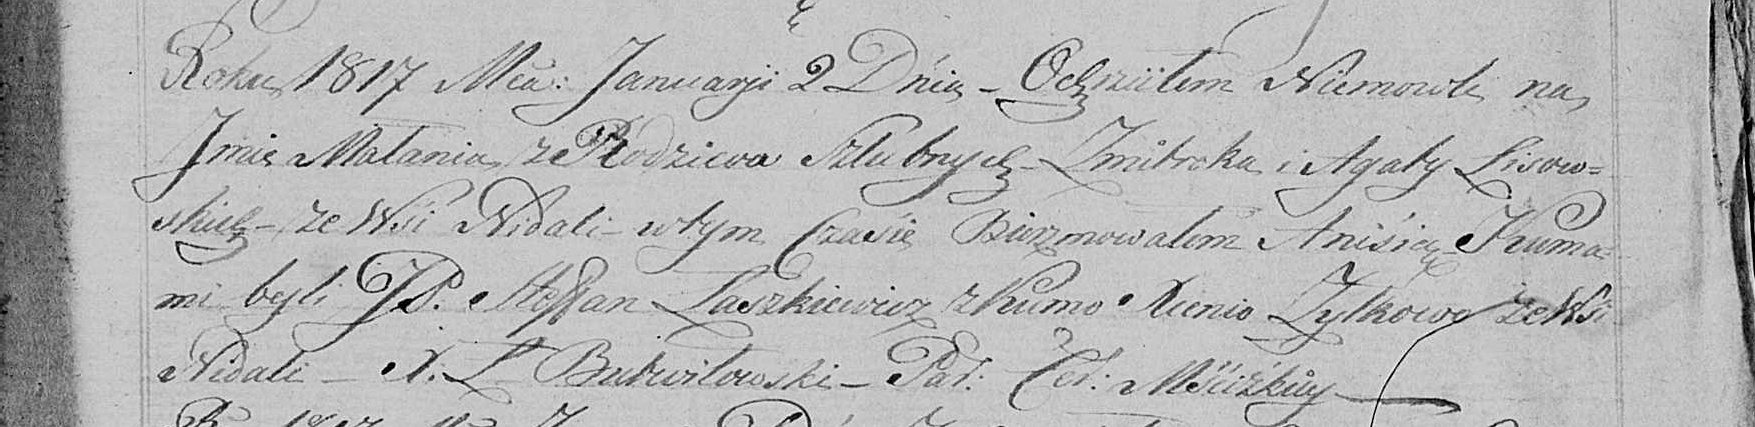 Roku 1817 Mca: Januarji 2 Dnia – Ochrzciłem Niemowle na
Jmie Małania z Rodziców Szlubnych – Zmitroka i Agaty Lisow=
skich – ze Wsi Nidali – w tym Czasie Bierzmowałem Anisia – Kuma=
mi byli JP. Steffan Laszkiewicz z Kumo Xienio Zylkowo ze Wsi
Nidali – X. L Butwiłowski – Par: Cer: Mścizkiy